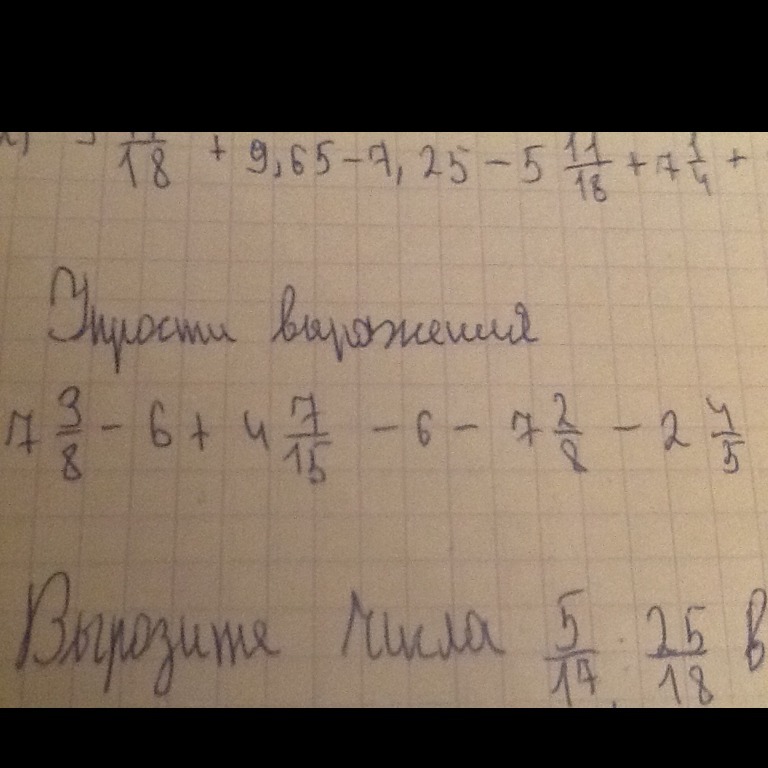 11/18 + 9,65 - 7,25 - 5 11/18 + 7 1/4 +
Упрости выражения
7 3/8 - 6 + 4 7/15 - 6 - 7 2/8 - 2 4/5
Вырозите числа 5/17 . 25/18 в